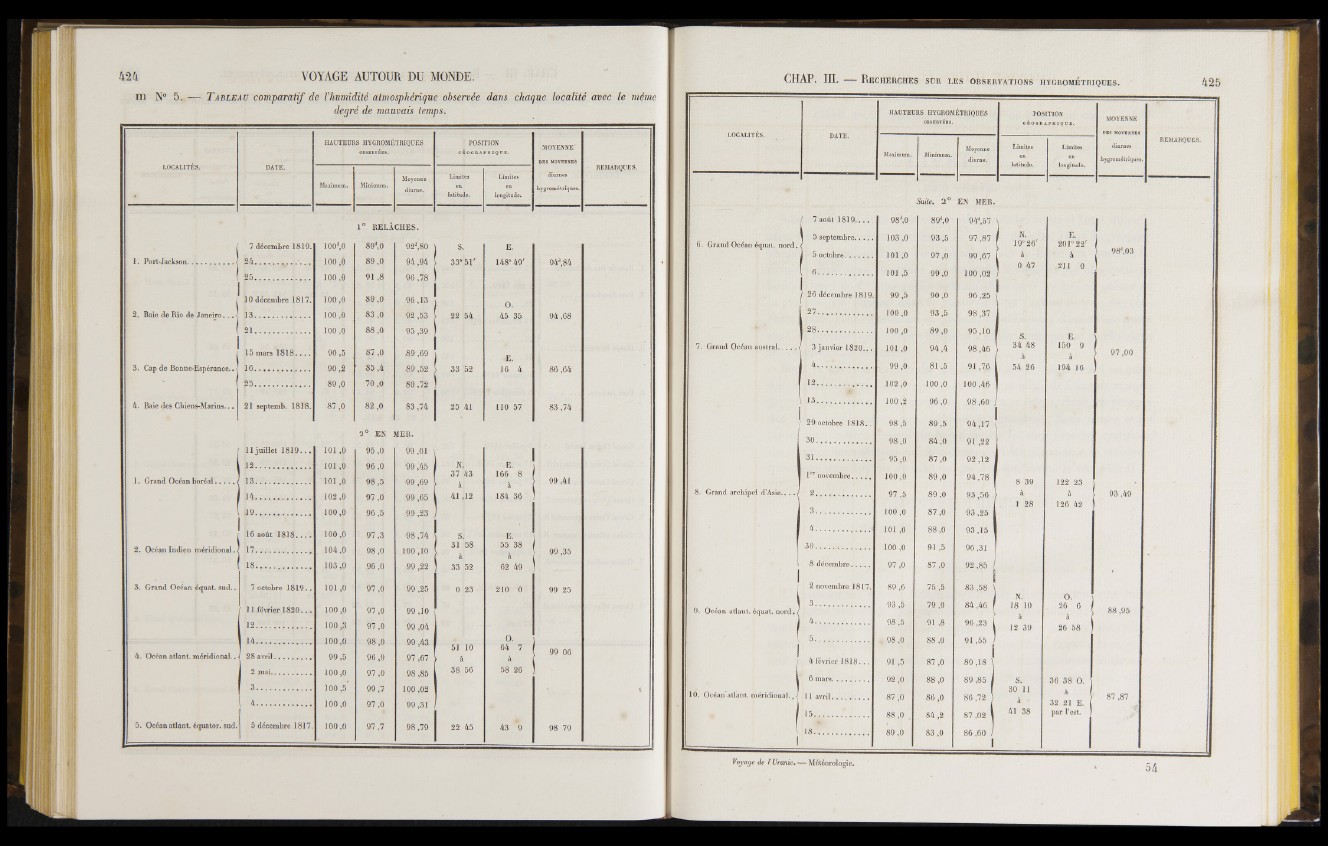 424 VOYAGE AUTOUR DU MONDE.
III Nº 5. — TABLEAU comparatif de l'humidité atmosphérique observée dans chaque localité avec le même
degré de mauvais temps.
LOCALITÉS. DATE. HAUTEURS HYGROMÉTRIQUES OBSERVÉES. POSITION GÉOGRAPHIQUE. MOYENNE DES MOYENNES diurnes hygrométriques. REMARQUES.
Maximum. Minimum. Moyenne diurne. Limites en latitude. Limites en longitude.
1° RELÂCHES.
7 décembre 1819. 100d,0 89d,0 92d,80 S. E.
1. Port-Jackson........... 24.............. 100 ,0 89 ,0 94 ,94 33° 51' 148° 49' 94d,84
25.............. 100 ,0 91 ,8 96 ,78
10 décembre 1817. 100 ,0 89 ,0 96 ,13 O.
2. Baie de Rio de Janeiro... 13.............. 100 ,0 83 ,0 92 ,53 22 54 45 35 94 ,68
21.............. 100 ,0 88 ,0 95 ,39
15 mars 1818.... 90 ,5 87 ,0 89 ,69 E.
3. Cap de Bonne-Espérance.. 16.............. 90 ,2 85 ,4 89 ,52 33 52 16 4 86 ,64
25.............. 89 ,0 70 ,0 80 ,72
4. Baie des Chiens-Marins... 21 septemb. 1818. 87 ,0 82 ,0 83 ,74 25 41 110 57 83 ,74
2° EN MER.
11 juillet 1819... 101 ,0 95 ,0 99 ,01
12.............. 101 ,0 96 ,0 99 ,45 N. E.
1. Grand Océan boréal..... 13.............. 101 ,0 98 ,5 99 ,69 37 43 à 166 8 à 99 ,41
14.............. 102 ,0 97 ,0 99 ,65 41 ,12 184 36
19.............. 100 ,0 96 ,5 99 ,23
16 août 1818.... 100 ,0 97 ,3 98 ,74 S. E.
2. Océan Indien méridional.. 17.............. 104 ,0 98 ,0 100 ,10 31 58 à 55 38 à 99 ,35
18.............. 103 ,0 96 ,0 99 ,22 33 52 62 49
3. Grand Océan équat. sud.. 7 octobre 1819.. 101 ,0 97 ,0 99 ,25 0 23 210 0 99 25
11 février 1820... 100 ,0 97 ,0 99 ,10
12.............. 100 ,3 97 ,0 99 ,04
14.............. 100 ,0 98 ,0 99 ,43 O.
4. Océan atlant. méridional.. 28 avril......... 99 ,5 96 ,0 97 ,67 51 10 à 64 7 à 99 06
2 mai.......... 100 ,0 97 ,0 98 ,85 38 56 58 26
3.............. 100 ,5 99 ,7 100 ,02
4.............. 100 ,0 97 ,0 99 ,31
5. Océan atlant. équator. sud. 5 décembre 1817. 100 ,0 97 ,7 98 ,79 22 45 43 9 98 79
CHAP. III. — RECHERCHES SUR LES OBSERVATIONS HYGROMÉTRIQUES. 425
LOCALITÉS. DATE. HAUTEURS HYGROMÉTRIQUES OBSERVÉES. POSITION GÉOGRAPHIQUE. MOYENNE DES MOYENNES diurnes hygrométriques. REMARQUES.
Maximum. Minimum. Moyenne diurne. Limites en latitude. Limites en longitude.
Suite. 2° EN MER.
7 août 1819.... 98d,0 89d,0 94d,57
5 septembre..... 103 ,0 93 ,5 97 ,87 N. E.
6. Grand Océan équat. nord.. 5 octobre....... 101 ,0 97 ,0 99 ,67 19° 26' à 201° 22' à 98d,03
6.............. 101 ,5 99 ,0 100 ,02 0 47 211 0
26 décembre 1819. 99 ,5 90 ,0 96 ,25
27.............. 100 ,0 93 ,5 98 ,37
28.............. 100 ,0 89 ,0 95 ,10 S. E.
7. Grand Océan austral..... 3 janvier 1820... 101 ,0 94 ,4 98 ,46 34 48 à 150 9 à 97 ,00
4.............. 99 ,0 81 ,5 91 ,76 54 26 194 16
12.............. 102 ,0 100 ,0 100 ,46
15.............. 100 ,2 96 ,0 98 ,60
29 octobre 1818.. 98 ,5 89 ,5 94 ,17
30.............. 98 ,0 84 ,0 91 ,22
31.............. 95 ,0 87 ,0 92 ,12
1er novembre..... 100 ,0 89 ,0 94 ,78
8. Grand archipel d'Asie..... 2.............. 97 ,5 89 ,0 93 ,56 8 39 à 122 23 à 93 ,49
3.............. 100 ,0 87 ,0 93 ,25 1 28 126 42
4.............. 101 ,0 88 ,0 93 ,15
30.............. 100 ,0 91 ,5 96 ,31
8 décembre...... 97 ,0 87 ,0 92 ,85
2 novembre 1817. 89 ,6 75 ,5 83 ,58 N. O.
9. Océan atlant. équat. nord.. 3.............. 93 ,5 79 ,0 84 ,46 18 10 à 26 6 à 88 ,95
4.............. 98 ,5 91 ,8 96 ,23 12 39 26 58
5.............. 98 ,0 88 ,0 91 ,55
4 février 1818... 91 ,5 87 ,0 89 ,18
6 mars.......... 92 ,0 88 ,0 89 ,85 S. 36 38 O.
10. Océan atlant. méridional... 11 avril......... 87 ,0 86 ,0 86 ,72 30 11 à à 87 ,87
15.............. 88 ,0 84 ,2 87 ,02 41 38 32 21 E. par l'est.
18.............. 89 ,0 83 ,0 86 ,60
Voyage de l'Uranie. — Météorologie.
54